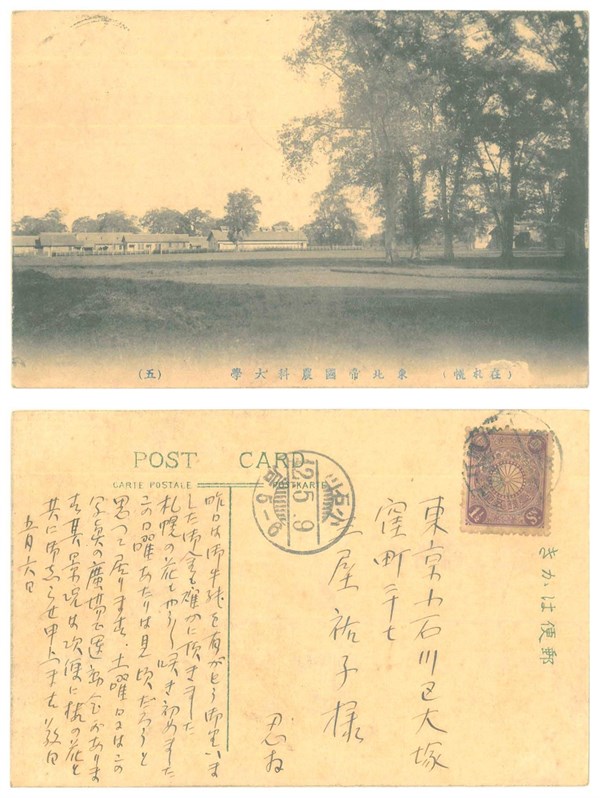 (在札幌) 東北帝國農科大學 (五)
POST CARD
CARTE POSTALE POSTKARTE
小石川
12.5.9
5-6
郵便はかき
東京小石川区大塚
窪町二十七
土屋祐子様
忍
昨日は御手紙を有がとう御坐いま
した御金も確かに頂きました
札幌の花もやう〱咲き初めました
この日曜あたりは見頃だろうと
思つて居ります、土曜日にはこの
写真の廣場で運動会がありま
す其景況は次便に桜の花と
共に御知らせ申上ます 敬白
五月六日